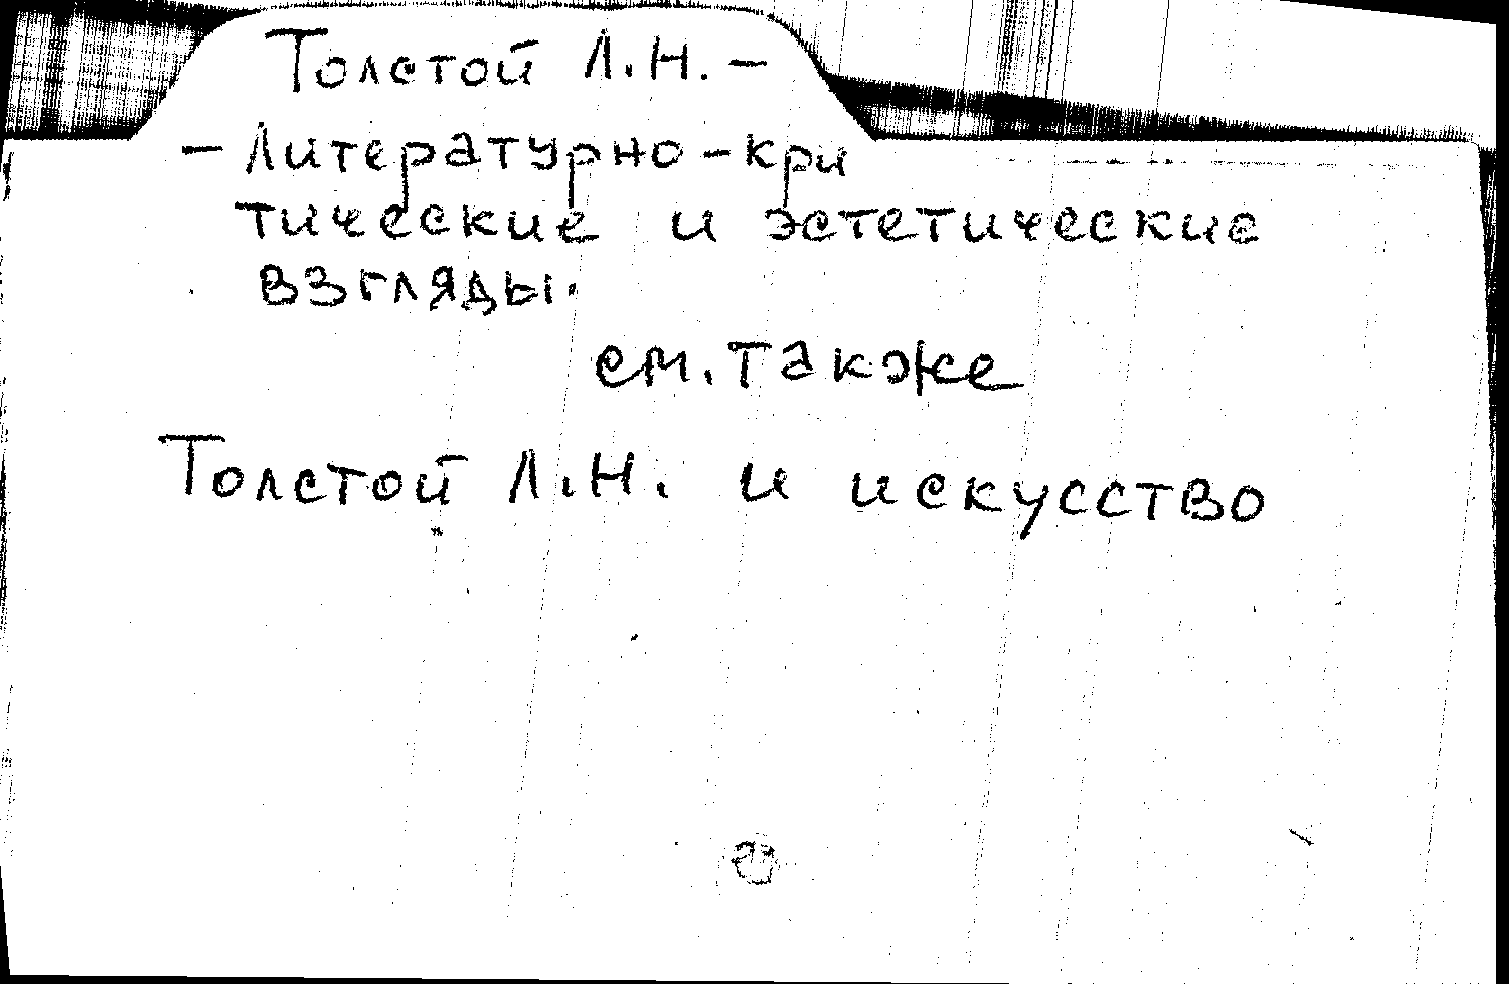 Толстой Л.Н. –
– Литературно-кри
тические и эстетические
взгляды.
см. также
Толстой Л.Н. и искусство